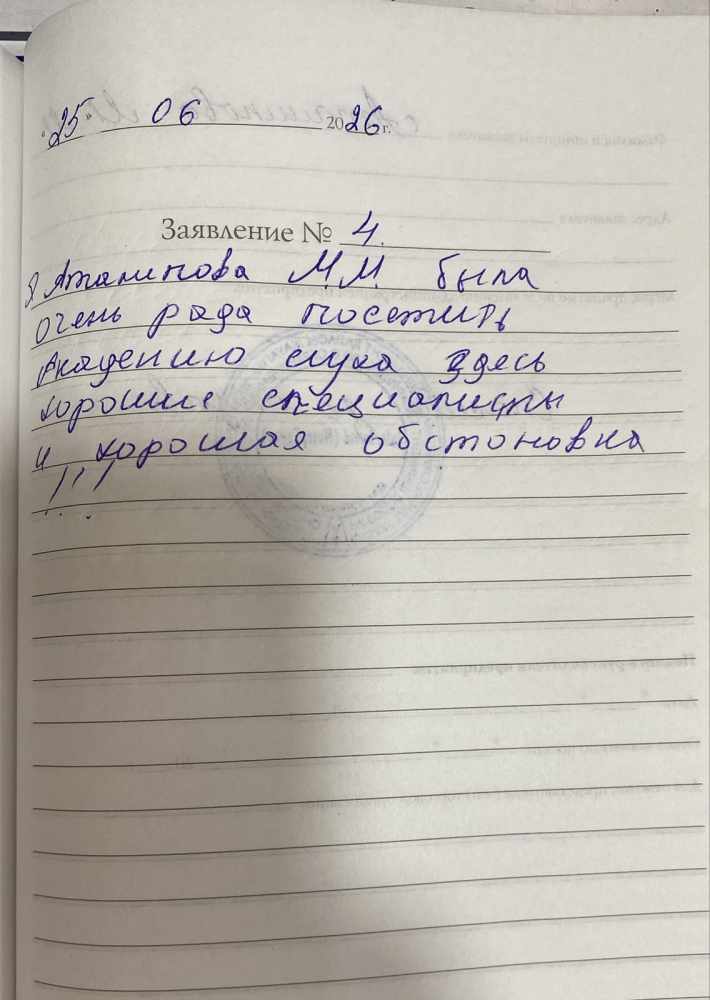 "25" 06 2026г.
Заявление № 4.
Я Аталипова М.М. была
очень рада посетить
Академию слуха здесь
хорошие специалисты
и хорошая обстоновка
!!!